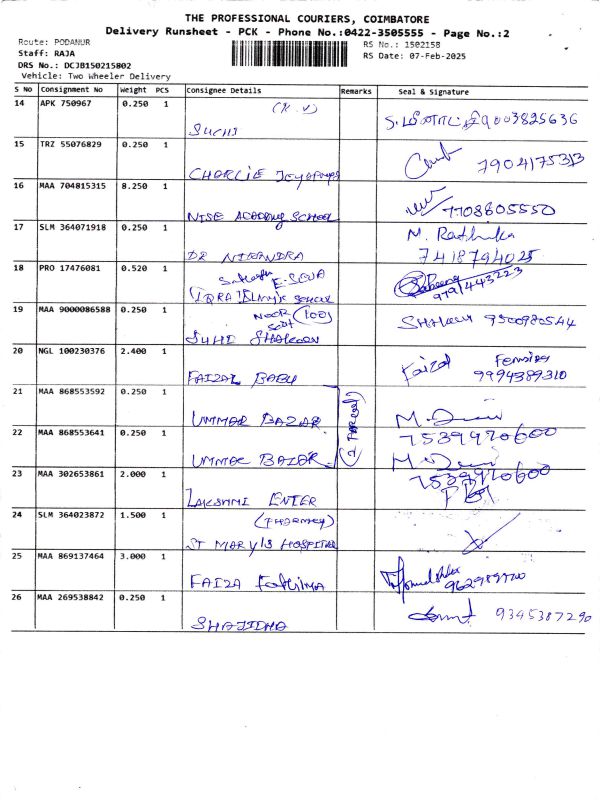 THE PROFESSIONAL COURIERS, COIMBATORE
Delivery Runsheet - PCK - Phone No.:0422-3505555 - Page No.:2
Route: PODANUR
RS No.: 1502158
Staff: RAJA
RS Date: 07-Feb-2025
DRS No.: DCJB150215802
Vehicle: Two Wheeler Delivery
S No Consignment No Weight PCS Consignee Details Remarks Seal & Signature
14 APK 750967 0.250 1 SUCHI 9003825636
15 TRZ 55076829 0.250 1 CHARLIE 7904175313
16 MAA 704815315 8.250 1 NISE ACADEMY SCHOOL 7708805550
17 SLM 364071918 0.250 1 DR NIRANDRA M. Rathika
7418794025
18 PRO 17476081 0.520 1 E-SEVA
IQRA ISLAMIC SCHOOL
19 MAA 9000086588 0.250 1 NOOR (100)
SUHI 9500980544
20 NGL 100230376 2.400 1 FAIZAL BABU Faizal
9994389310
21 MAA 868553592 0.250 1 UMMAR BAZAR (2 PARCEL)
7539970600
22 MAA 868553641 0.250 1 UMMAR BAZAR
7539970600
23 MAA 302653861 2.000 1 LAKSHMI ENTER
24 SLM 364023872 1.500 1 (PHARMACY)
ST MARY'S HOSPITAL
25 MAA 869137464 3.000 1 FAIZA Fathima
26 MAA 269538842 0.250 1 SHAJIDHA 9345387290